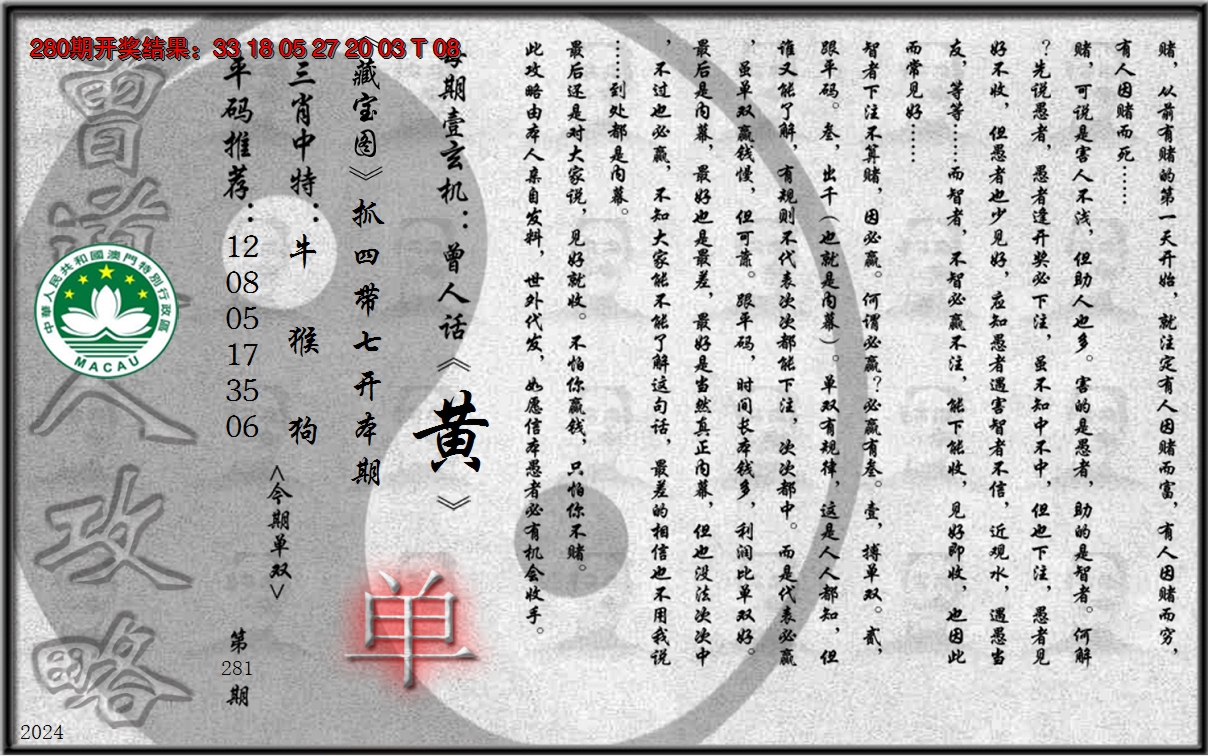 280期开奖结果：33 18 05 27 20 03 T 08
赌，从前有赌的第一天开始，就注定有人因赌而富，有人因赌而穷，
有人因赌而死……
赌，可说是害人不浅，但助人也多。害的是愚者，助的是智者。何解
？先说愚者，愚者逢开奖必下注，虽不知中不中，但也下注，愚者见
好不收，但愚者也少见好，应知愚者遇害智者不信，近观水，遇愚当
友，等等……而智者，不智必赢不注，能下能收，见好即收，也因此
而常见好……
智者下注不算赌，因必赢。何谓必赢？必赢有叁。壹，搏单双。贰，
跟平码。叁，出千（也就是内幕）。单双有规律，这是人人都知，但
谁又能了解，有规则不代表次次都能下注，次次都中。而是代表必赢
，虽单双赢钱慢，但可靠。跟平码，时间长本钱多，利润比单双好。
最后是内幕，最好也是最差，最好是当然真正内幕，但也没法次次中
，不过也必赢，不知大家能不能了解这句话，最差的相信也不用我说
……到处都是内幕。
最后还是对大家说，见好就收。不怕你赢钱，只怕你不赌。
此攻略由本人亲自发料，世外代发，如愿信本愚者必有机会收手。
每期壹玄机：曾人话《黄》
《藏宝图》抓四带七开本期
单
三肖中特：牛 猴 狗
<今期单双>
平码推荐：12 08 05 17 35 06
第281期
曾道人攻略
中華人民共和國澳門特別行政區
MACAU
2024